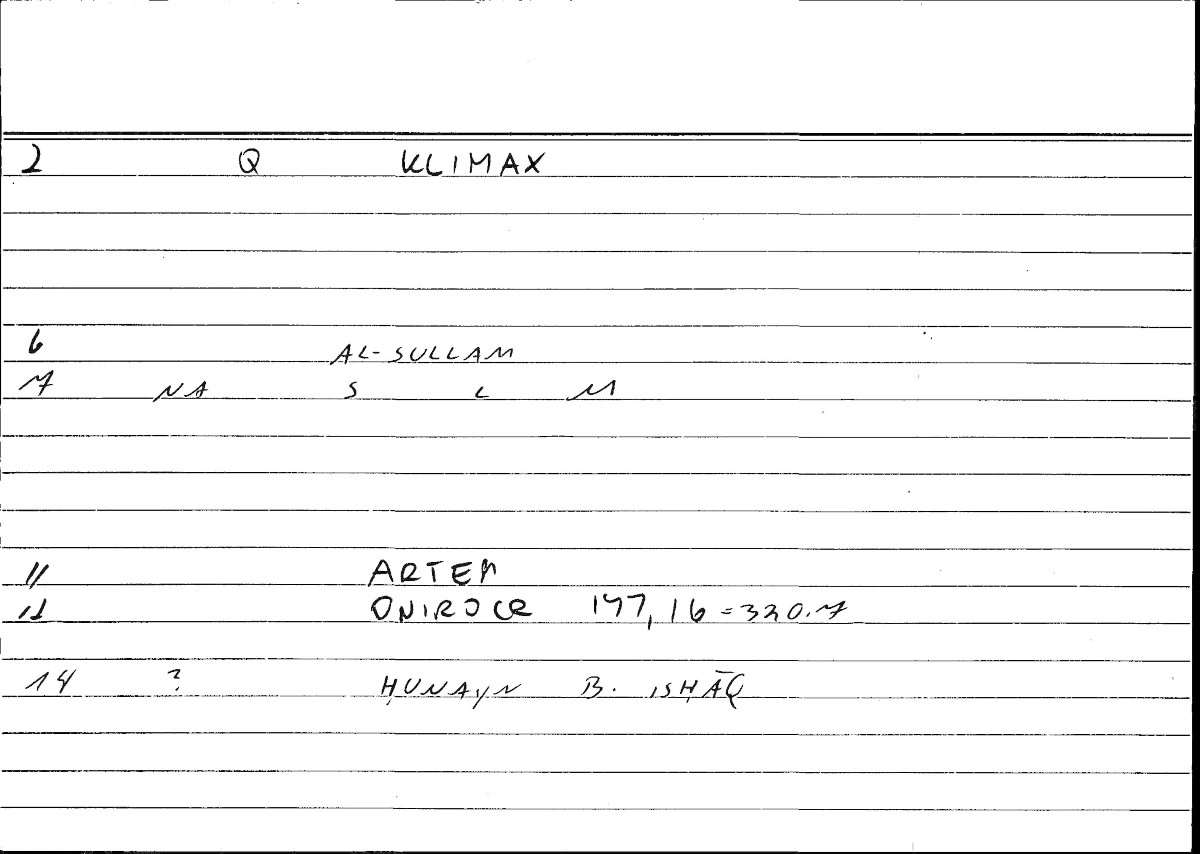 2 Q KLIMAX
6 AL-SULLAM
7 NA S L M
11 ARTEM
12 ONIROCR 147,16=320.7
14 ? ḤUNAYN B. ISḤĀQ